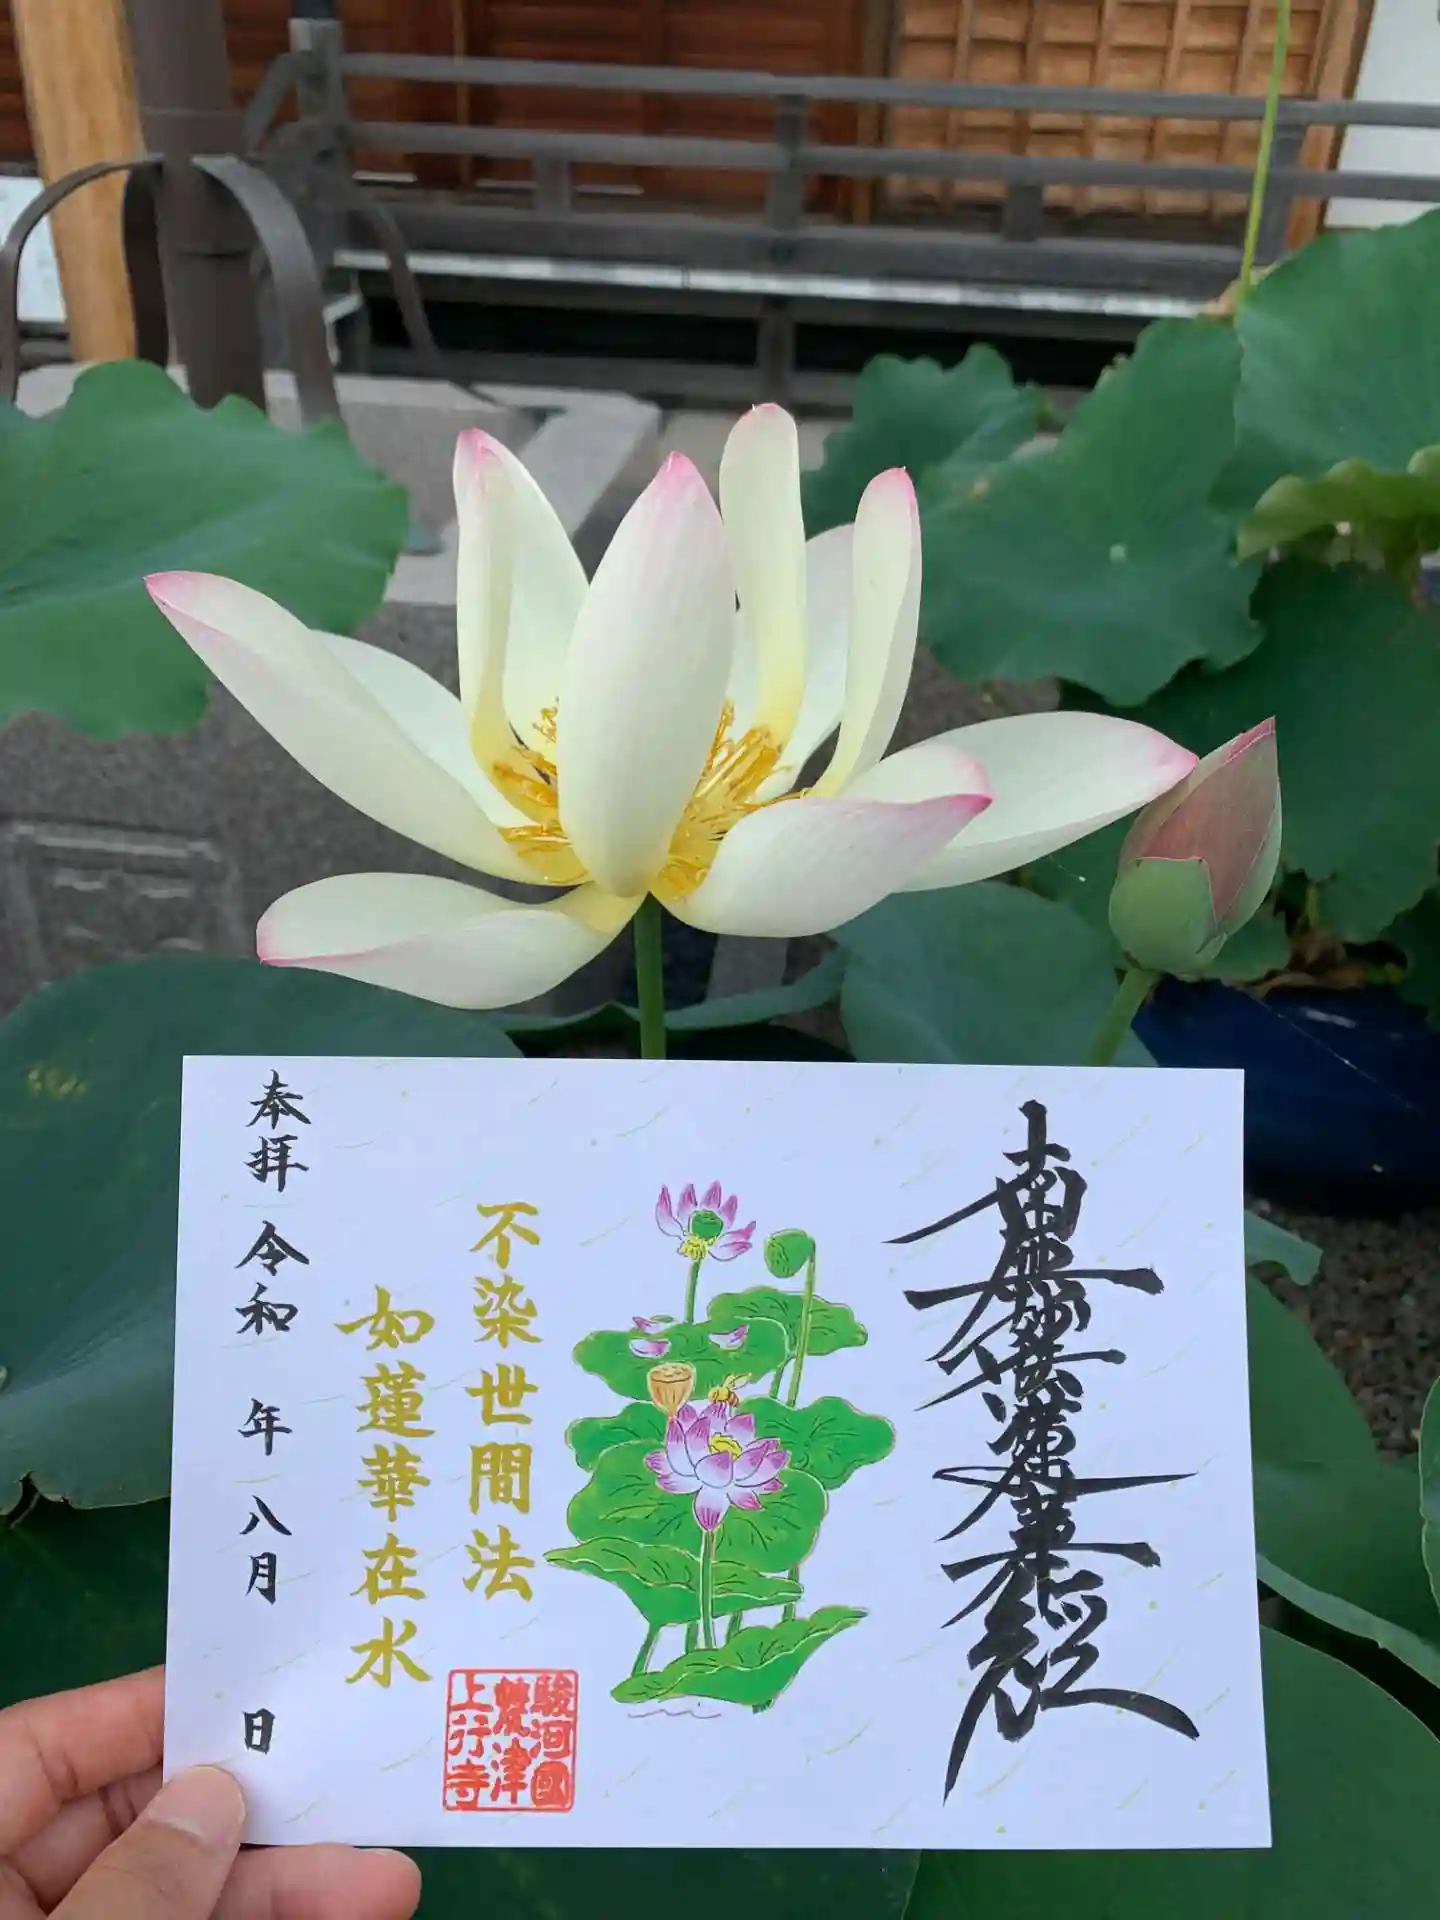 南無妙法蓮華経
不染世間法
如蓮華在水
駿河國
焼津
上行寺
奉拝 令和 年 八月 日